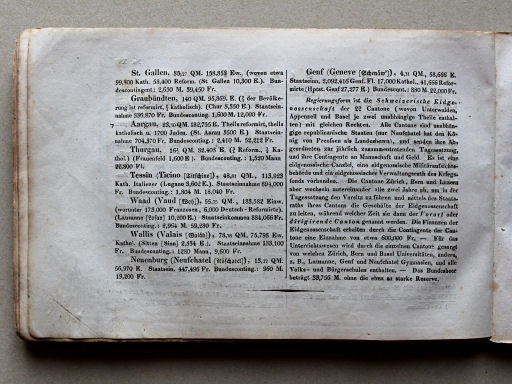 St. Gallen, 35,27 QM. 158,853 Ew. (wovon etwa
99,300 Kath. 58,400 Reform. (St Gallen 10,300 E.). Bun-
descontingent: 2,630 M. 39,450 Fr.
Graubündten, 140 QM. 95,369. E. (⅔ der Bevölke-
rung ist reformirt, ⅓ katholisch). (Chur 5,350 E.) Staatsein-
nahme 535,870 Fr. Bundesconting. 1,600 M. 12,000 Fr.
Aargau, QM. 182,755 E. Theils reformirt, theils
katholisch u. 1700 Juden. (St. Aarau 3500 E.) Staatsein-
nahme 704,370 Fr. Bundesconting.: 2,410 M. 52,212 Fr.
Thurgau, QM. E. (Reform., Ka-
thol.) (Frauenfeld 1,600 E.). Bundesconting.: 1,520 Mann
22,800 Fl.
Tessin (Ticino), QM., 113,923
Kath. Italiener (Lugano 3,602 E.). Staatseinnahme 694,000
Fr. Bundesconting.: 1,804 M. 18,040 Fr.
Waad (Vaud), QM., 183,582 Einw.
(worunter 173,000 Franzosen, 6,000 Deutsch - Reformirte).
(Lausanne 10,200 E.) Staatseinkommen 884,066 Fr.
Bundesconting.: 2,964 M. 59,280 Fr.
Wallis (Valais), QM., 75,798 Ew.
Kathol. (Sitten [Sion] E.). Staatseinnahme 133,100
Fr. Bundesconting.: 1280 Mann, 9,600 Fr.
Neuenburg (Neufchatel), QM.
E. Staatsein. 447,496 Fr. Bundesconting.: 960 M.
19,200 Fr.
Genf (Geneve), QM., 58,666 E.
Staatseinn. 2,092,416 Genf. Fl. 17,000 Kathol., 41,666 Refor-
mirte (Hpst. Genf 27,277 E.) Bundescont.: 880 M. 22,000 Fr.
Regierungsform ist die Schweizerische Eidge-
nossenschaft der 22 Cantone (wovon Unterwalden,
Appenzell und Basel je zwei unabhängige Theile enthal-
ten) mit gleichen Rechten. Alle Cantone sind unabhän-
gige republicanische Staaten (nur Neufchatel hat den Kö-
nig von Preußen als Landesherrn), und senden ihre Ab-
geordneten zur jährlich zusammentretenden Tagsatzung,
und ihre Contingente an Mannschaft und Geld. Es ist eine
eidgenössische Canzlei, eine eidgenössische Militäraufsichts-
behörde und ein eidgenössischer Verwaltungsrath des Kriegs-
fonds vorhanden. Die Cantone Zürich, Bern und Luzern
aber wechseln untereinander alle zwei Jahre ab, um in der
Tagsatzung den Vorsitz zu führen und mittels des Staats-
raths ihres Cantons die Geschäfte der Eidgenossenschaft
zu leiten, während welcher Zeit sie dann der Vorort oder
dirigirende Canton genannt werden. Die Finanzen der
Eidgenossenschaft erhalten durch die Contingente der Can-
tone eine Einnahme von etwa 600,000 Fr. — Für das
Unterrichtswesen wird durch die einzelnen Cantone gesorgt
von welchen Zürich, Bern und Basel Universitäten, andere,
z. B., Lausanne, Genf und Neufchatel Gymnasien, und alle
Volks- und Bürgerschulen enthalten. — Das Bundesheer
beträgt 33,758 M. ohne die eben so starke Reserve.